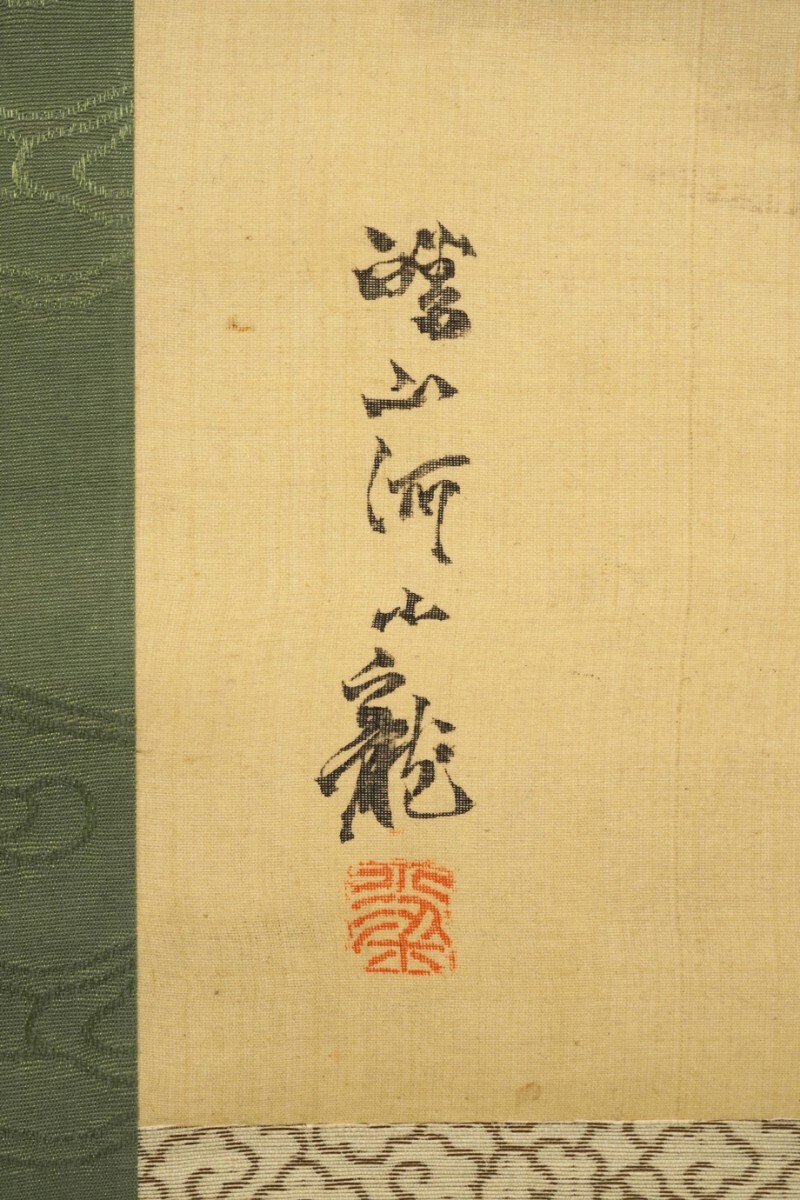 皤山河小龍